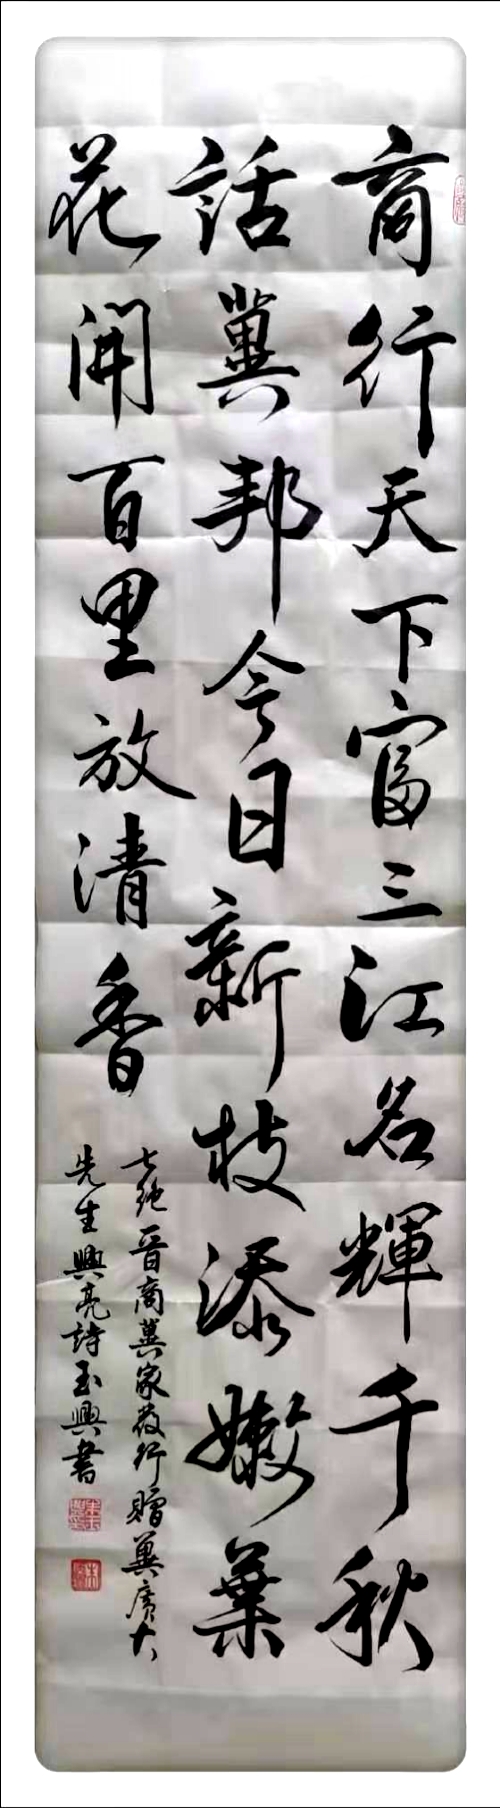 商行天下富三江名輝千秋
話冀邦今日新枝添嫩葉
花開百里放清香
七绝晋商冀家商行贈冀廣大
先生興亮詩玉興書